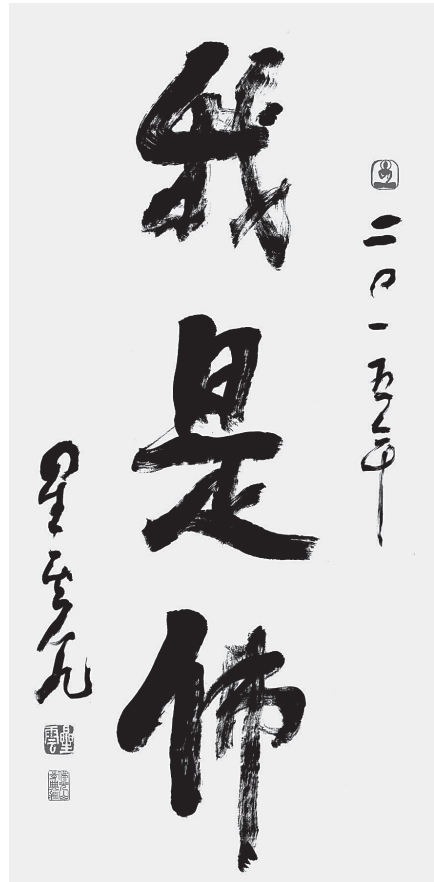 二〇一五年
我是佛
星雲
星雲